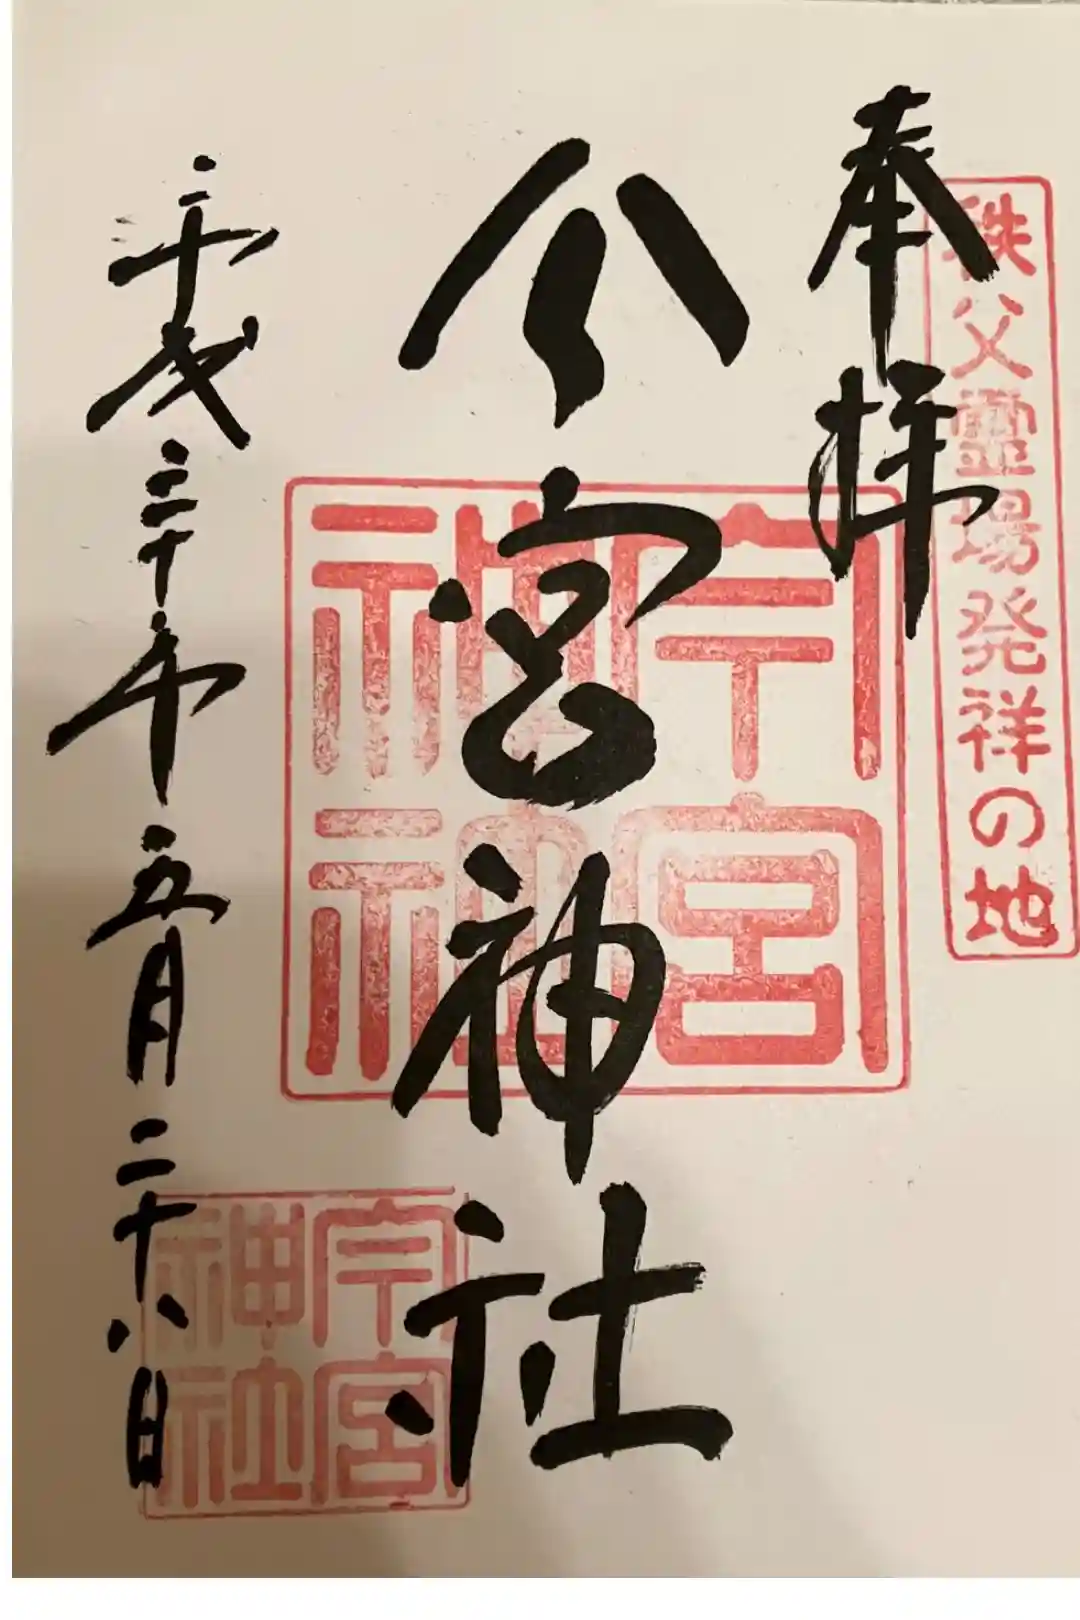 秩父霊場発祥の地
奉拝
今宮神社
今宮神社
平成三十年五月二十八日
今宮神社